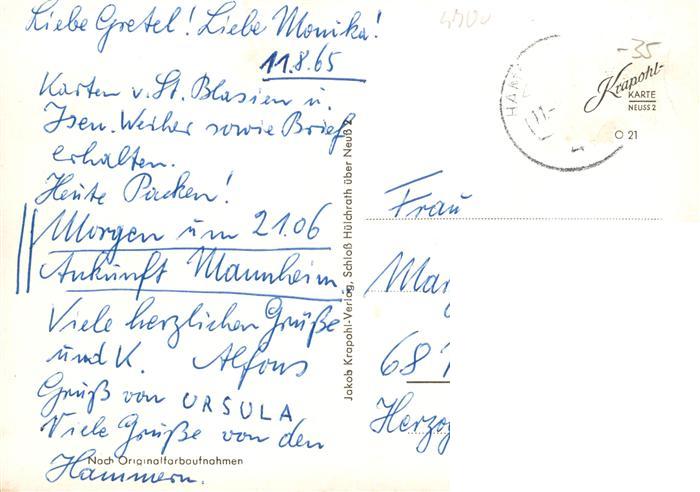 Liebe Gretel! Liebe Monika!
11.8.65
Karten v. St. Blasien u.
Isen. Weiher sowie Brief
erhalten.
Heute Packen!
Morgen um 21.06
Ankunft Mannheim.
Viele herzlichen Grüße
und K. Alfons
Gruß von URSULA
Viele Grüße von den
Hammern.
Nach Originalfarbaufnahmen
Jakob Krapohl-Verlag, Schloß Hülchrath über Neuß 2
-35
Krapohl-
KARTE
NEUSS 2
O 21
Frau
Mar
68
Herzog